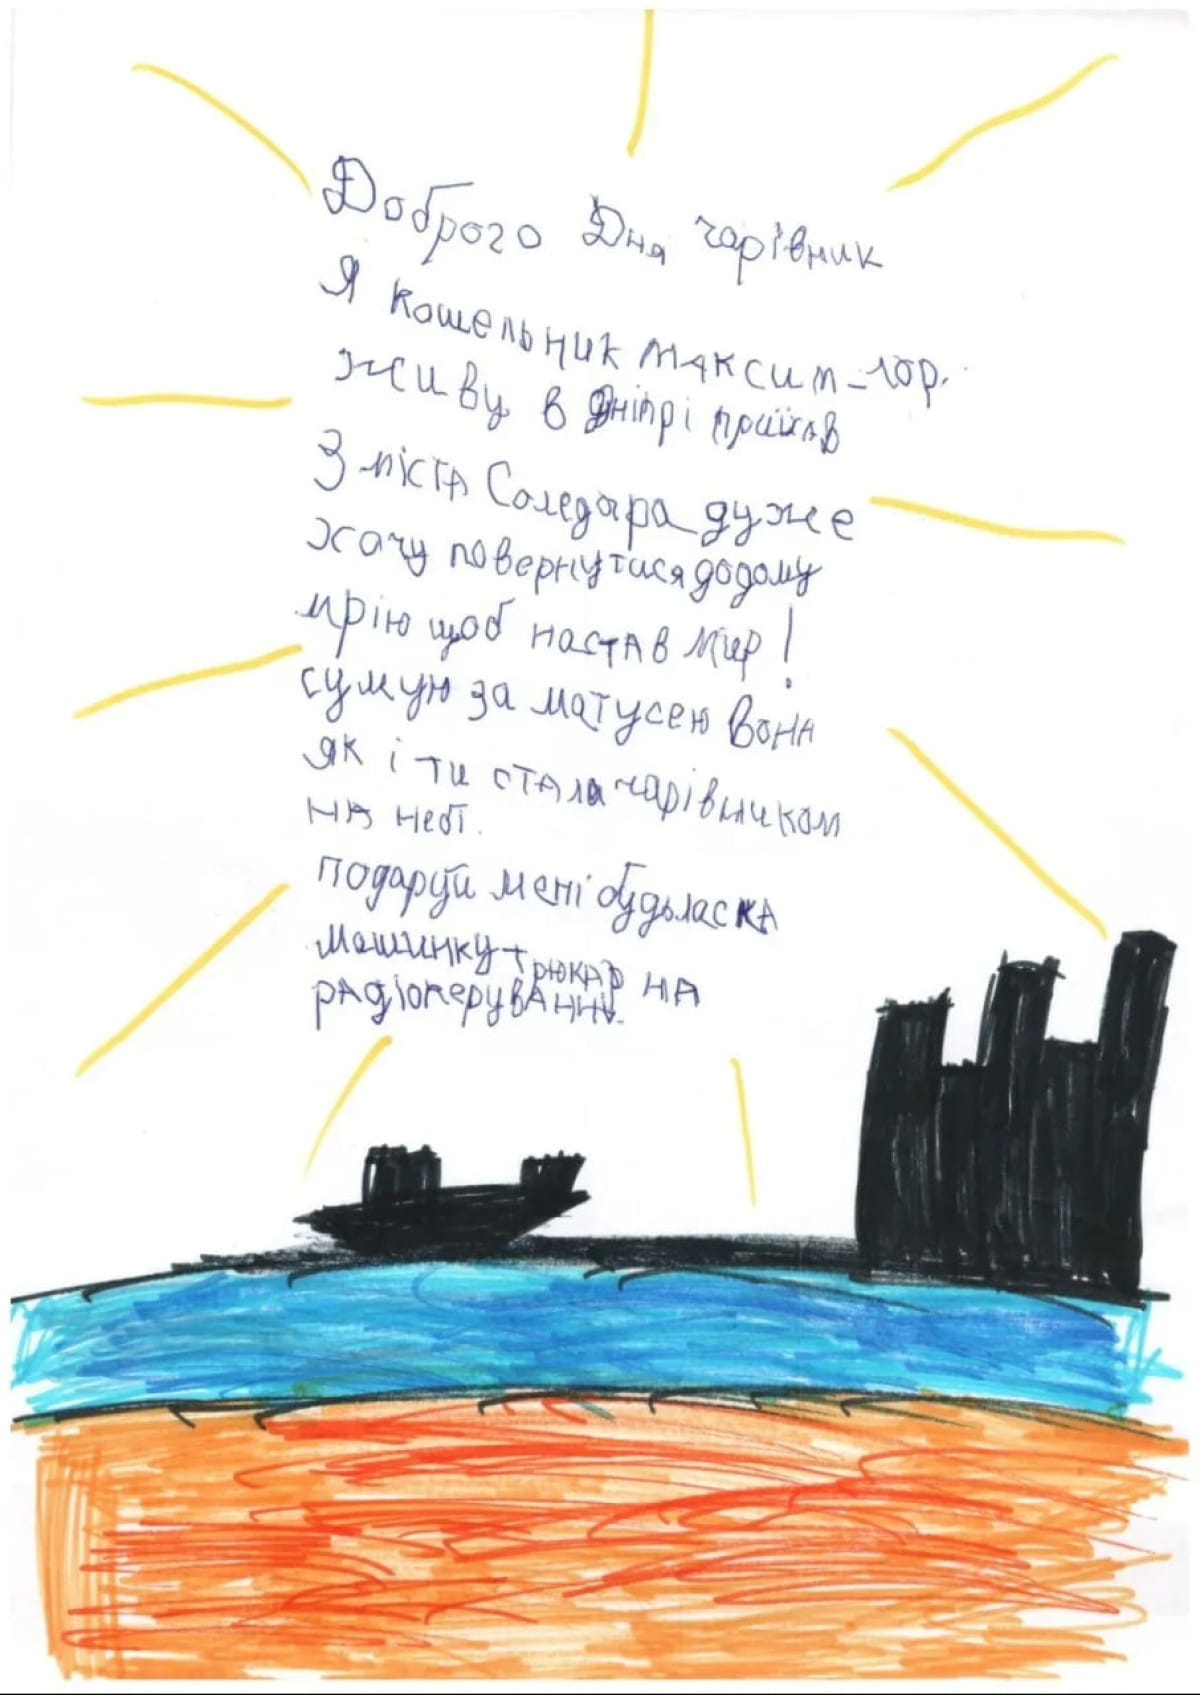 Доброго Дня чарівник
Я кошельник максим-10р.
живу в Дніпрі приїхав
З міста Соледара дуже
хачу повернутися додому
мрію щоб настав мир!
сумую за матусею вона
як і ти стала чарівником
на небі.
подаруй мені будьласка
машинку трюкар на
радіокерування.